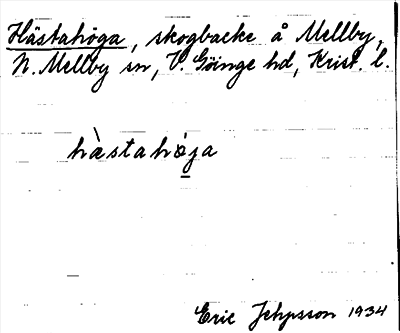 Hästahöga, skogbacke å Mellby,
N. Mellby sn, V. Göinge hd, Krist. l.
hàstahö́ja
Eric Jehpsson 1934